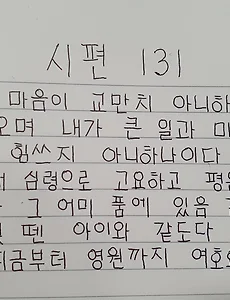 시편 131
마음이 교만치 아니하
며 내가 큰 일과 미
힘쓰지 아니하나이다
심령으로 고요하고 평온
그 어미 품에 있음
뗀 아이와 같도다
지금부터 영원까지 여호와